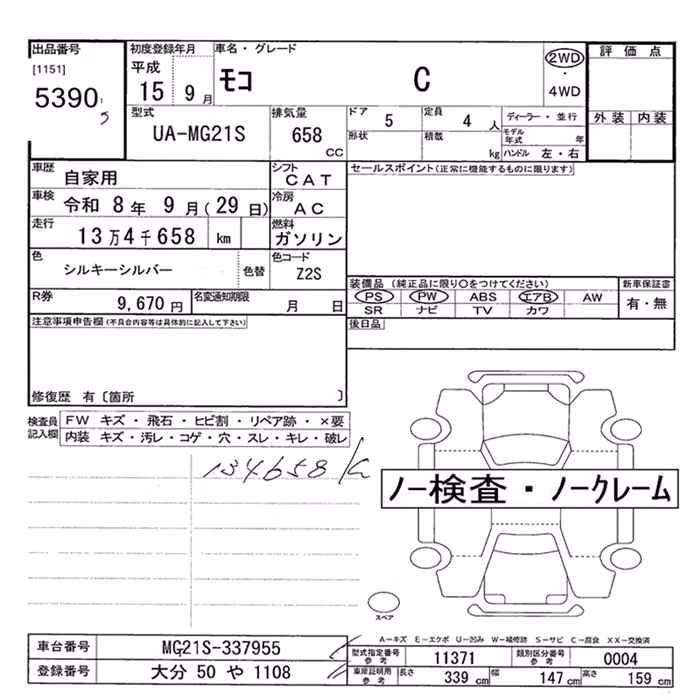 出品番号 初度登録年月 車名・グレード 評価点
[1151] 平成 15 9月 モコ C 2WD・4WD
5390 5
外装 内装
型式 排気量 ドア 5 定員 4人 ディーラー・並行
UA-MG21S 658 CC 形状 積載 kg モデル年式 年
ハンドル 左・右
車歴 自家用 シフト CAT セールスポイント(正常に機能するものに限ります)
車検 令和 8年 9月(29日) 冷房 AC
走行 13万4千658 km 燃料 ガソリン
色 シルキーシルバー 色替 色コード Z2S
装備品(純正品に限り○をつけてください) 新車保証書
R券 9,670円 名変通知期限 月 日 PS PW ABS エアB AW 有・無
SR ナビ TV カワ
注意事項申告欄(不具合内容等は具体的に記入して下さい) 後日品
修復歴 有〔箇所 〕
検査員記入欄 FW キズ・飛石・ヒビ割・リペア跡・×要
内装 キズ・汚レ・コゲ・穴・スレ・キレ・破レ
134658
ノー検査・ノークレーム
スペア
A-キズ E-エクボ U-凹み W-補修跡 S-サビ C-腐食 XX-交換済
車台番号 MG21S-337955 型式指定番号 参考 11371 類別区分番号 参考 0004
登録番号 大分 50 や 1108 車庫証明用 参考 長さ 339 cm 幅 147 cm 高さ 159 cm